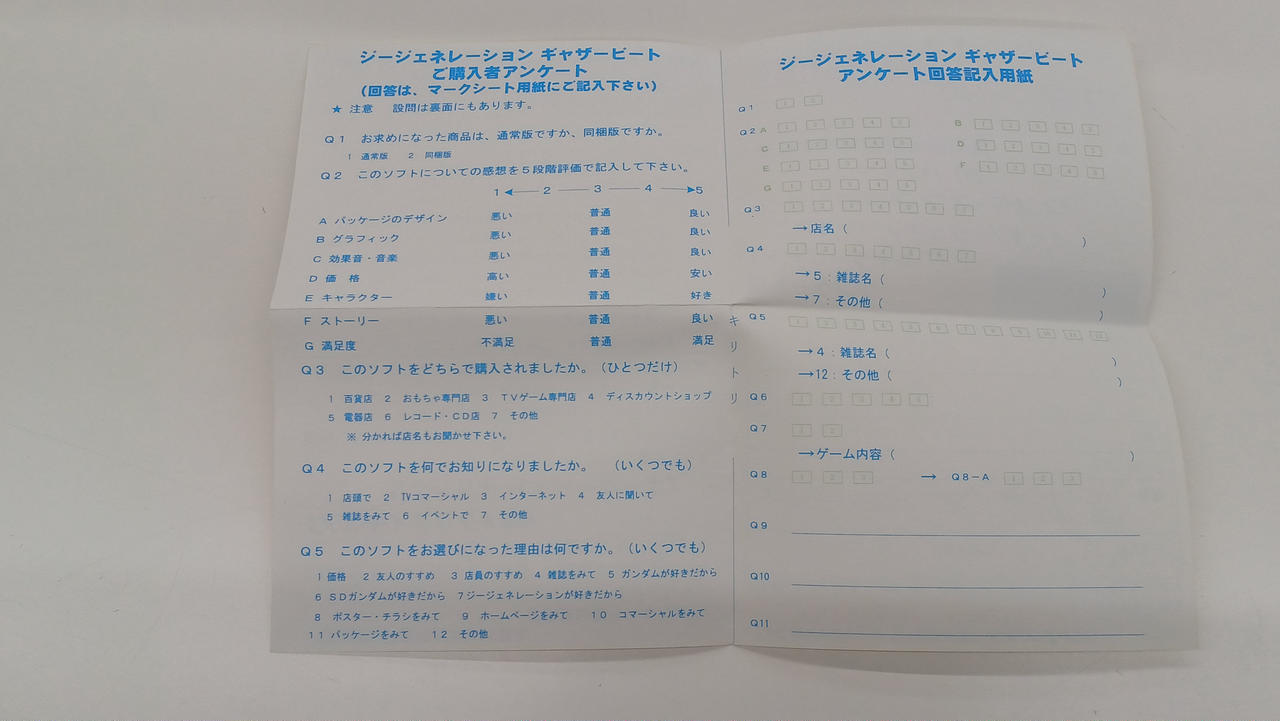 ジージェネレーション ギャザービート
ご購入者アンケート
(回答は、マークシート用紙にご記入下さい)
★ 注意 設問は裏面にもあります。
Q1 お求めになった商品は、通常版ですか、同梱版ですか。
1 通常版 2 同梱版
Q2 このソフトについての感想を5段階評価で記入して下さい。
1 ← 2 3 4 → 5
A パッケージのデザイン 悪い 普通 良い
B グラフィック 悪い 普通 良い
C 効果音・音楽 悪い 普通 良い
D 価 格 高い 普通 安い
E キャラクター 嫌い 普通 好き
F ストーリー 悪い 普通 良い
G 満足度 不満足 普通 満足
Q3 このソフトをどちらで購入されましたか。(ひとつだけ)
1 百貨店 2 おもちゃ専門店 3 TVゲーム専門店 4 ディスカウントショップ
5 電器店 6 レコード・CD店 7 その他
※ 分かれば店名もお聞かせ下さい。
Q4 このソフトを何でお知りになりましたか。 (いくつでも)
1 店頭で 2 TVコマーシャル 3 インターネット 4 友人に聞いて
5 雑誌をみて 6 イベントで 7 その他
Q5 このソフトをお選びになった理由は何ですか。(いくつでも)
1 価格 2 友人のすすめ 3 店員のすすめ 4 雑誌をみて 5 ガンダムが好きだから
6 SDガンダムが好きだから 7 ジージェネレーションが好きだから
8 ポスター・チラシをみて 9 ホームページをみて 10 コマーシャルをみて
11 パッケージをみて 12 その他
キリトリ
ジージェネレーション ギャザービート
アンケート回答記入用紙
Q1 1 2
Q2 A 1 2 3 4 5 B 1 2 3 4 5
C 1 2 3 4 5 D 1 2 3 4 5
E 1 2 3 4 5 F 1 2 3 4 5
G 1 2 3 4 5
Q3 1 2 3 4 5 6 7
→店名( )
Q4 1 2 3 4 5 6 7
→5：雑誌名( )
→7：その他( )
Q5 1 2 3 4 5 6 7 8 9 10 11 12
→4：雑誌名( )
→12：その他( )
Q6 1 2 3 4 5
Q7 1 2
→ゲーム内容( )
Q8 1 2 3 → Q8-A 1 2 3
Q9
Q10
Q11